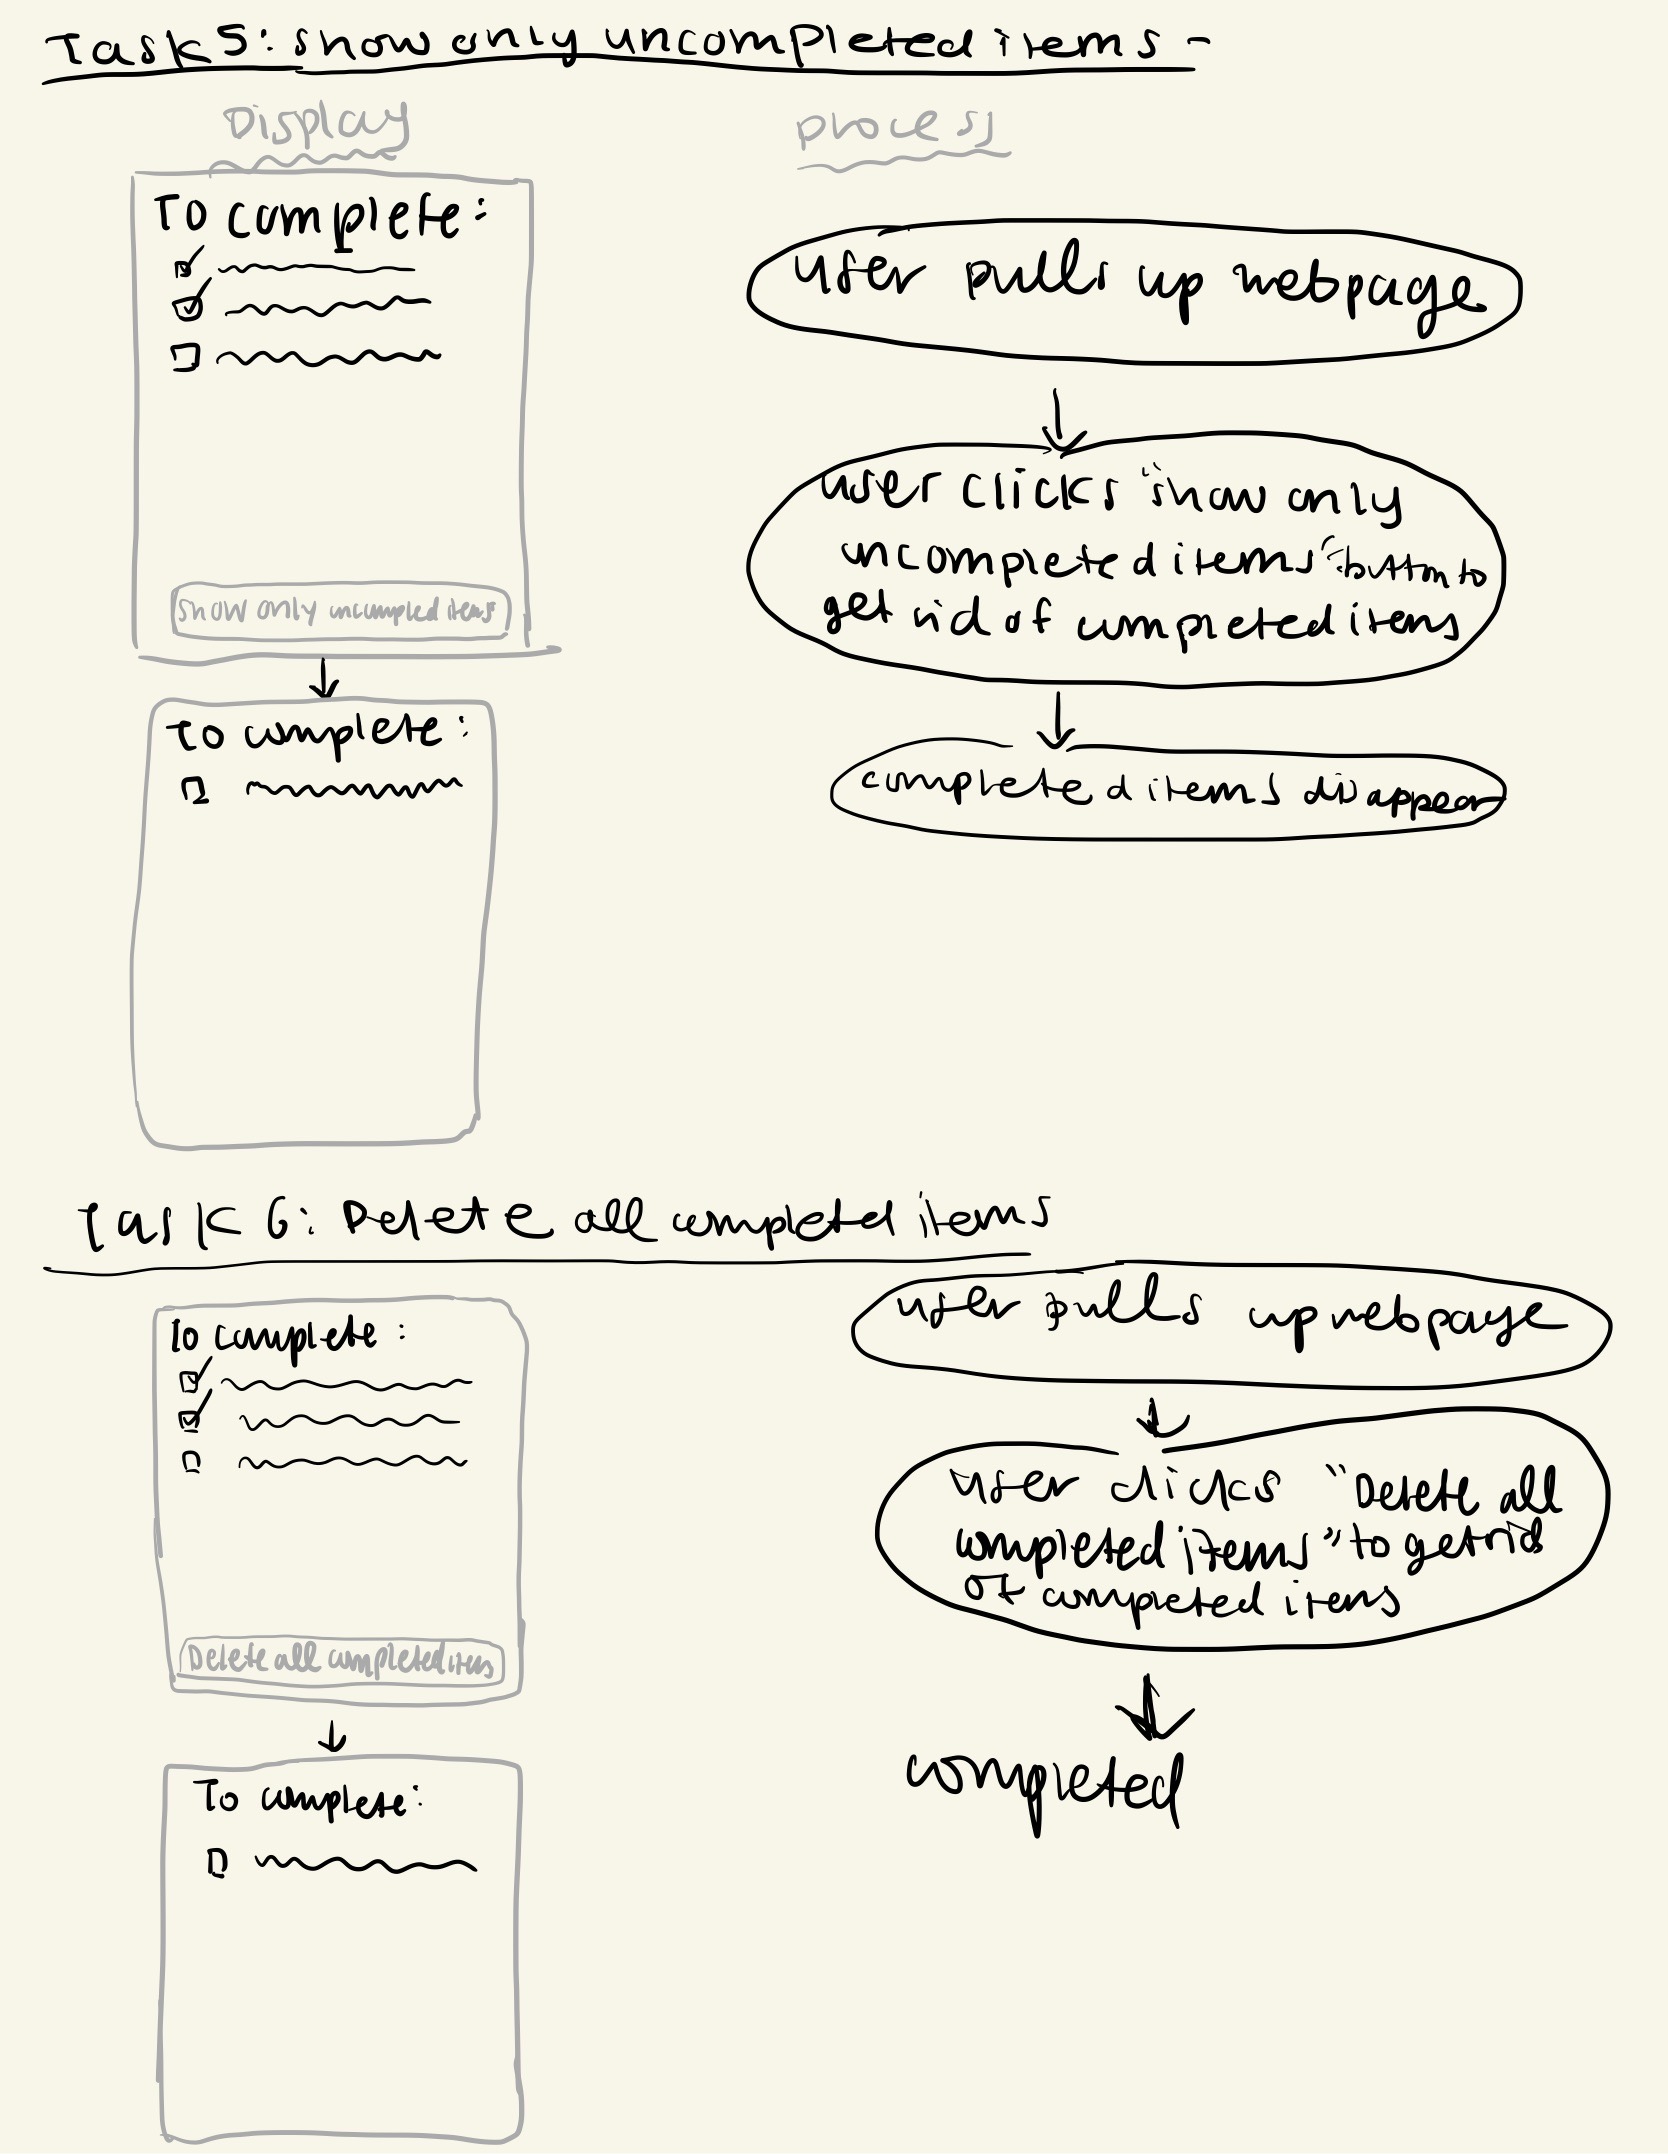 Task 5: show only uncompleted items -
Display
process
To complete:
show only uncompled items
To complete:
user pulls up webpage
user clicks "show only
uncompleted items" button to
get rid of completed items
completed items disappear
Task 6: Delete all completed items
To complete:
Delete all completed items
To complete:
user pulls up webpage
user clicks "Delete all
completed items" to get rid
of completed items
completed